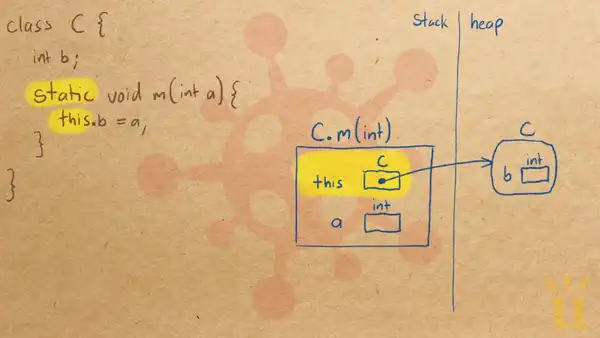 class C {
int b;
static void m(int a) {
this.b = a;
}
}
Stack heap
C.m(int)
C
this
int
a
C
int
b